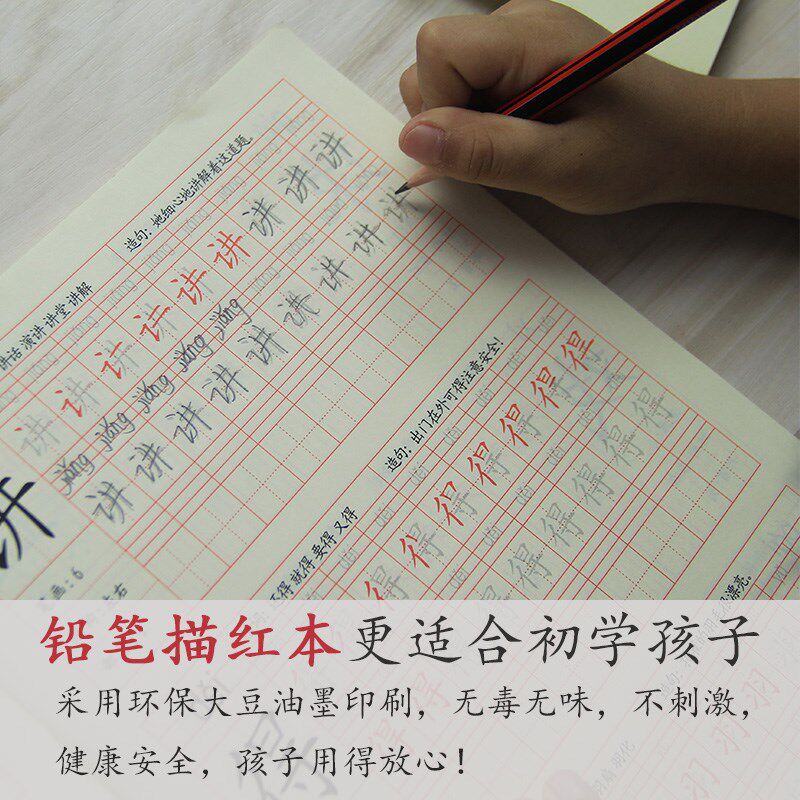 造句：她细心地讲解着这道题。
讲话 演讲 讲堂 讲解
讲 讲 讲 讲 讲 讲 讲 讲 讲
jiǎng jiǎng jiǎng jiǎng jiǎng
讲 讲 讲 讲 讲 讲 讲 讲
讲
造句：出门在外可得注意安全！
得 就得 要得 又得
得 得 得 得 得 得
得 得 得 得 得 得
画：6
左右
漂亮。
得
羽 羽 羽
铅笔描红本更适合初学孩子
采用环保大豆油墨印刷，无毒无味，不刺激，
健康安全，孩子用得放心！